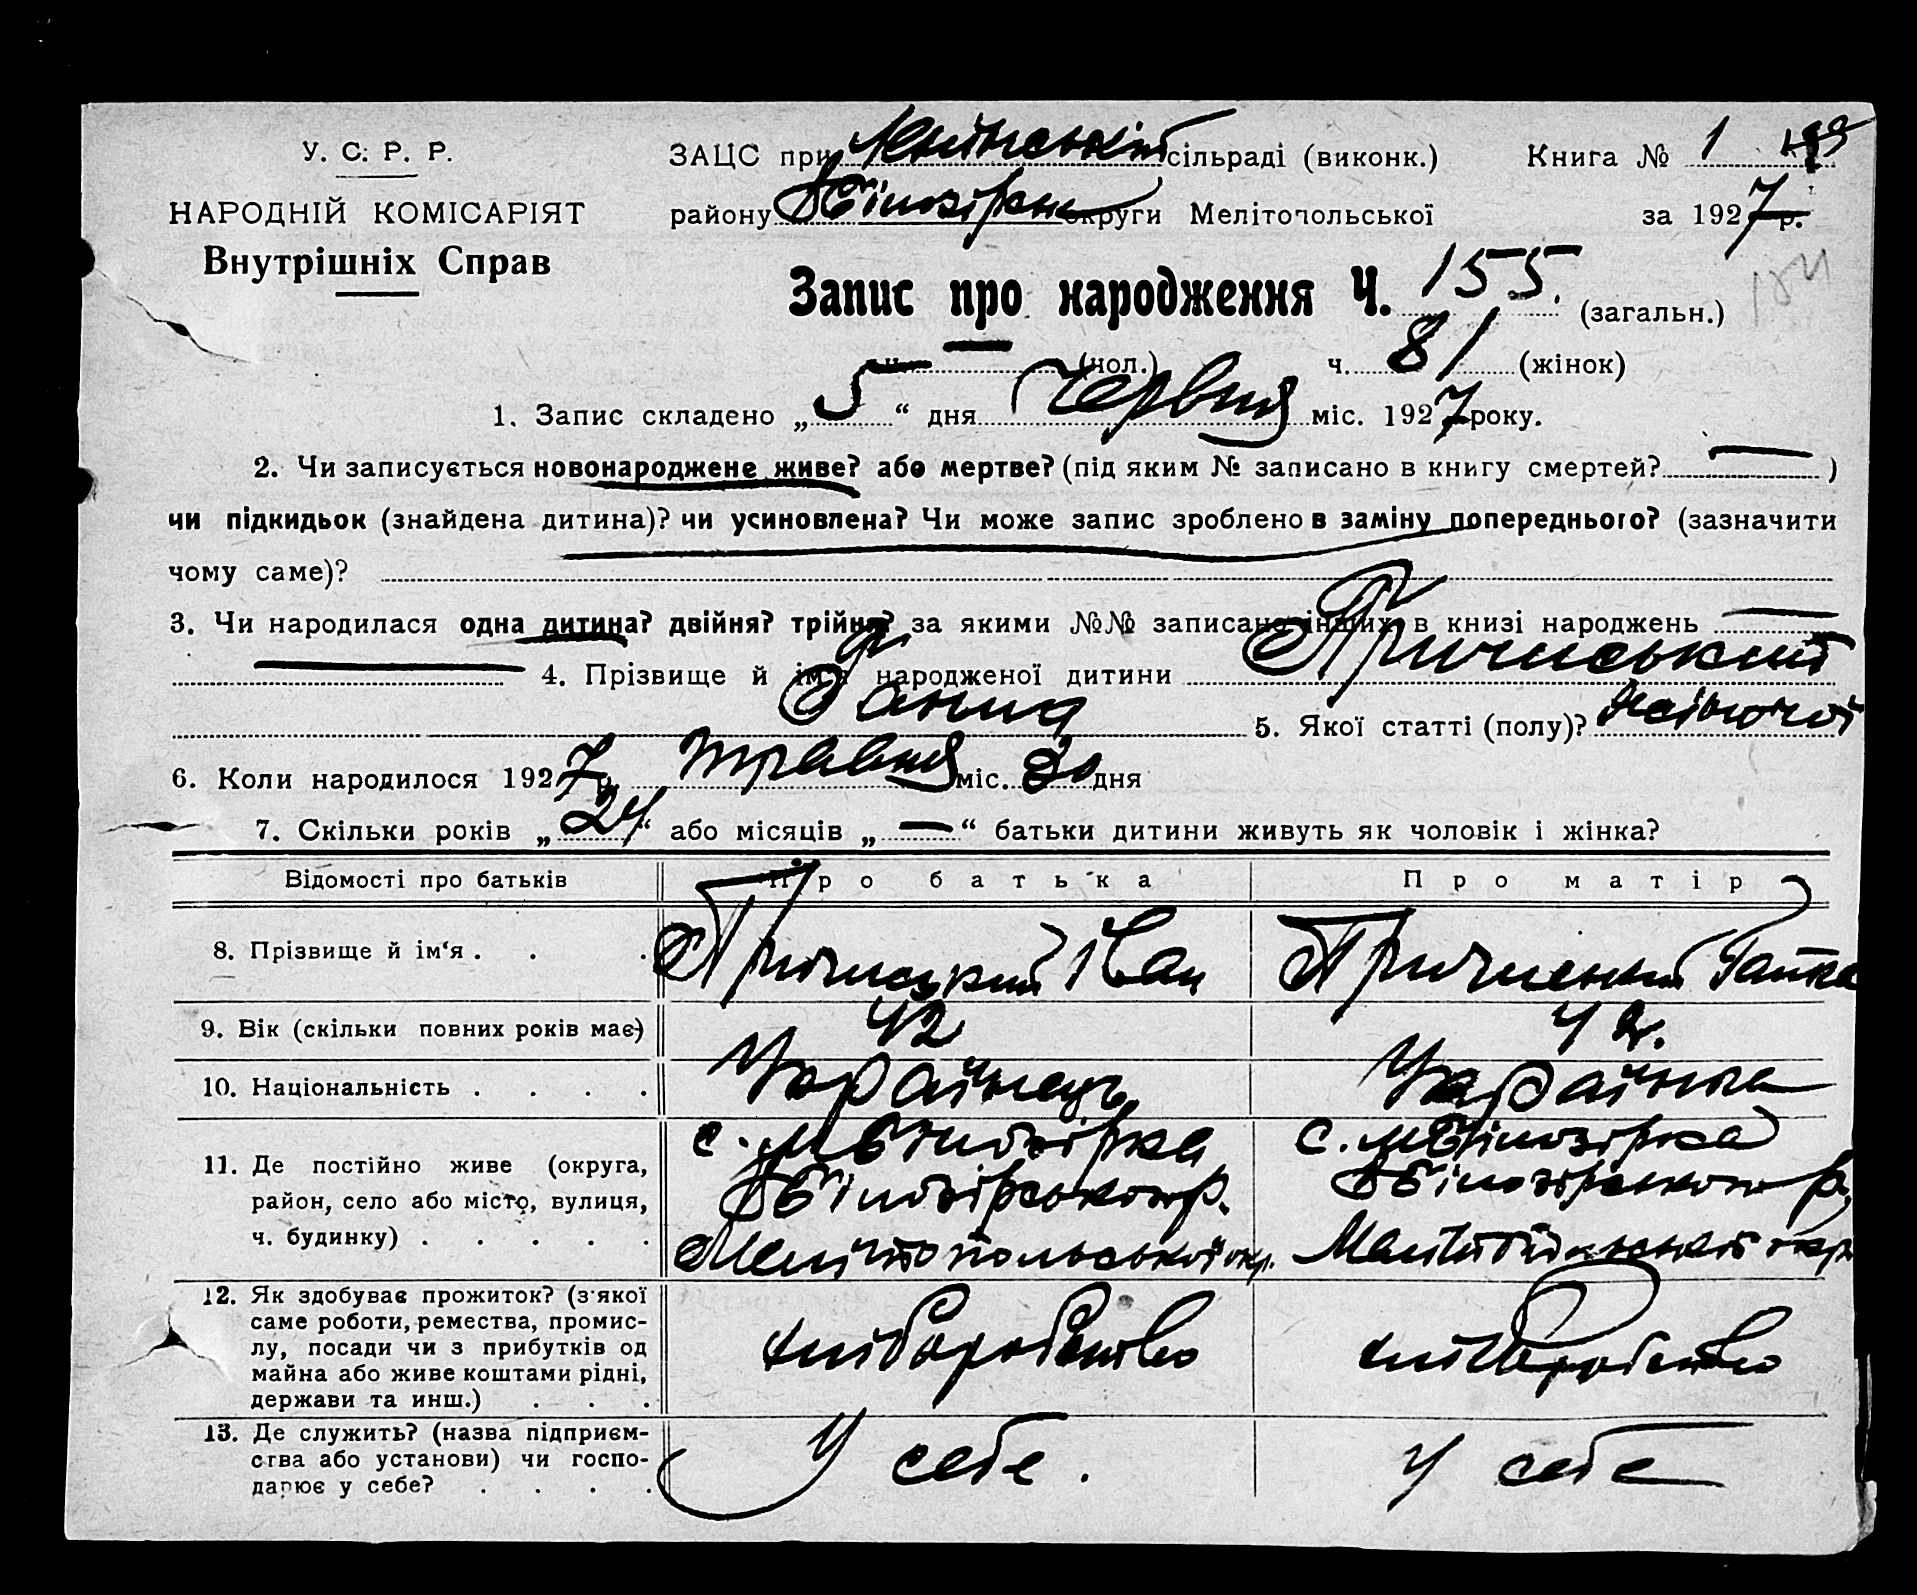 У. С. Р. Р.
НАРОДНІЙ КОМІСАРІЯТ
Внутрішніх Справ
ЗАЦС при сільраді (виконк.) Книга № 1
району Білозірськ округи Мелітопольської за 1927 р.
Запис про народження Ч. 155. (загальн.)
ч. — (чол.) ч. 81 (жінок)
1. Запис складено „5“ дня Червня міс. 1927 року.
2. Чи записується новонароджене живе? або мертве? (під яким № записано в книгу смертей? — )
чи підкидьок (знайдена дитина)? чи усиновлена? Чи може запис зроблено в заміну попереднього? (зазначити
чому саме)?
3. Чи народилася одна дитина? двійня? трійня? за якими №№ записано інших в книзі народжень —
— 4. Прізвище й ім'я народженої дитини
Ганна 5. Якої статті (полу)? жіночої
6. Коли народилося 1927 р. травня міс. 30 дня
7. Скільки років „24“ або місяців „—“ батьки дитини живуть як чоловік і жінка?
Відомості про батьків Про батька Про матір
8. Прізвище й ім‘я . . . Іван
9. Вік (скільки повних років має) 42 42.
10. Національність . . . . Українець Українка
11. Де постійно живе (округа, район, село або місто, вулиця, ч. будинку) . . . . .
с. М Білозірка с. М Білозірка
Білозірського р. Білозірського р.
Мелітопольської окр. Мелітопольської окр.
12. Як здобуває прожиток? (з'якої саме роботи, ремества, промислу, посади чи з прибутків од майна або живе коштами рідні, держави та инш.) . . . хліборобство хліборобство
13. Де служить? (назва підприємства або установи) чи господарює у себе? . . . . У себе. У себе